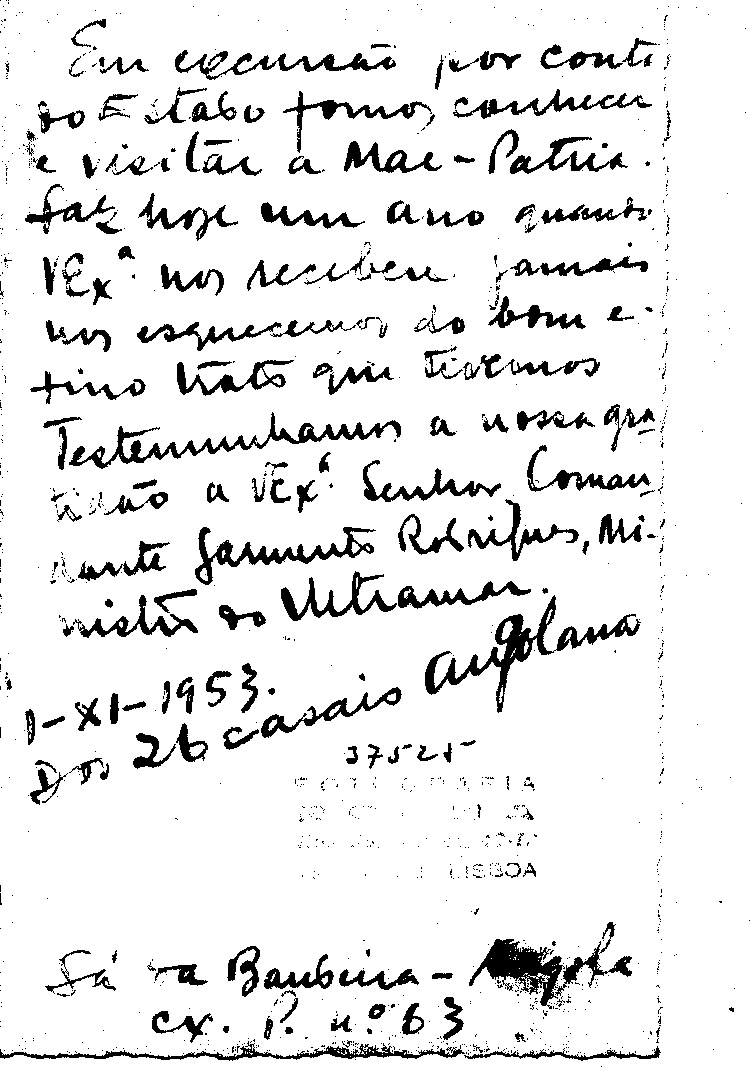 Em excursão por conta
do Estado fomos conhecer
e visitar a Mãe-Patria.
Faz hoje um ano quando
VExª. nos recebeu jamais
nos esquecemos do bom e
fino trato que tivemos
Testemunhamos a nossa gra
tidão a VExª. Senhor Coman
dante Sarmento Rodrigues, Mi-
nistro do Ultramar.
1-XI-1953.
Dos 26 casais Angolana
37525
FOTOGRAFIA
LISBOA
Sá da Bandeira - Angola
cx. P. nº 63